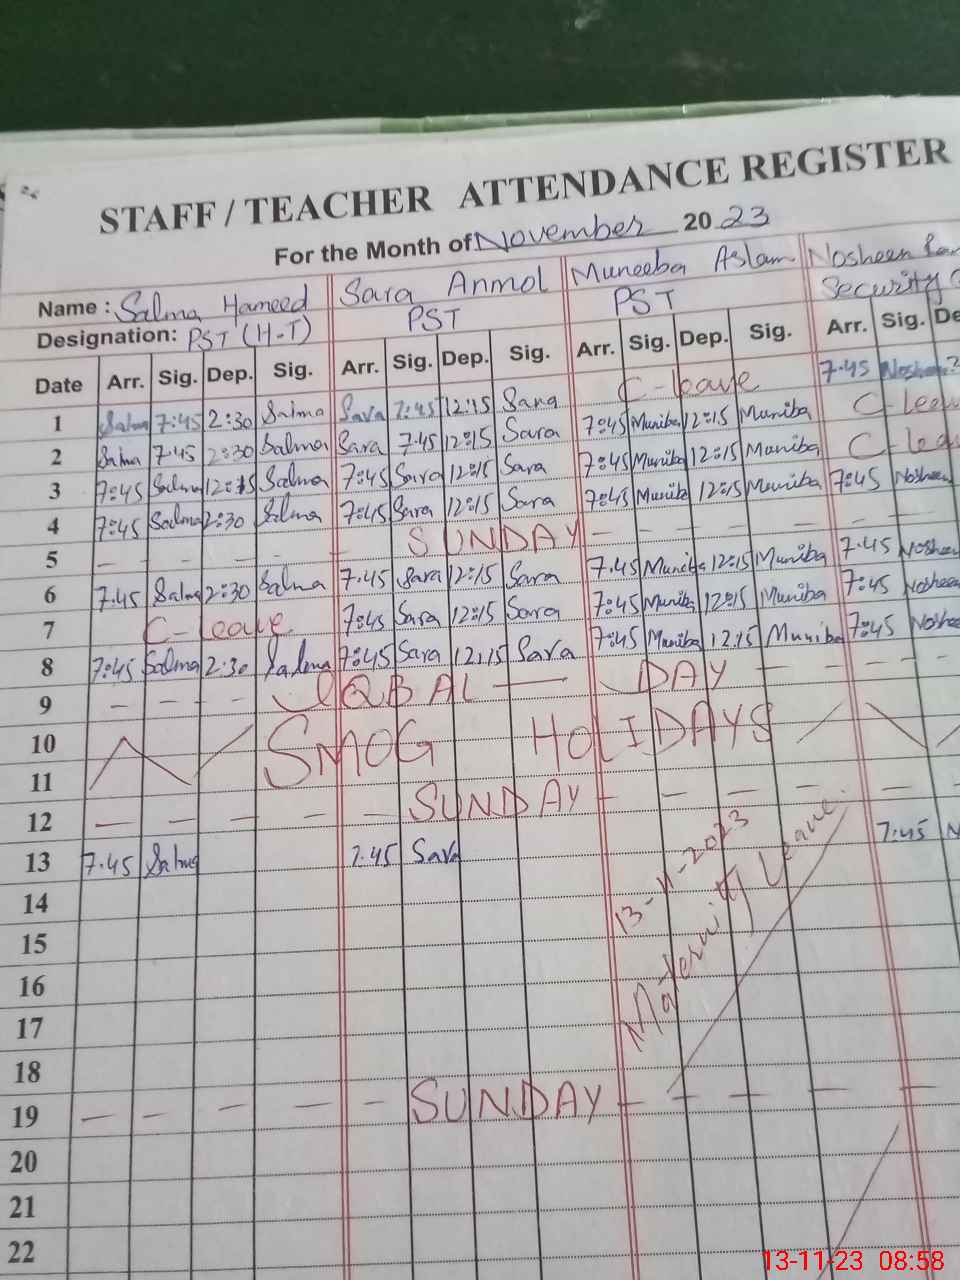 STAFF / TEACHER ATTENDANCE REGISTER
For the Month of November 2023
Name : Salma Hameed Sara Anmol Muneeba Aslam Nosheen
Designation: PST (H-T) PST PST Security
Date Arr. Sig. Dep. Sig. Arr. Sig. Dep. Sig. Arr. Sig. Dep. Sig. Arr. Sig. De
1 Salma 7:45 2:30 Salma Sara 7:45 12:15 Sara C-leave 7.45 Nosheen
2 Salma 7.45 2:30 Salma Sara 7.45 12:15 Sara 7:45 Muniba 12:15 Muniba C-leav
3 7:45 Salma 12:15 Salma 7:45 Sara 12:15 Sara 7:45 Muniba 12:15 Muniba C-lea
4 7:45 Salma 2:30 Salma 7:45 Sara 12:15 Sara 7:45 Muniba 12:15 Muniba 7:45 Nosheen
5 - - - - - SUNDAY - - - - - -
6 7.45 Salma 2:30 Salma 7.45 Sara 12:15 Sara 7.45 Muniba 12:15 Muniba 7.45 Noshee
7 C-leave 7:45 Sara 12:15 Sara 7:45 Muniba 12:15 Muniba 7:45 Noshee
8 7:45 Salma 2:30 Salma 7:45 Sara 12:15 Sara 7:45 Muniba 12.15 Muniba 7:45 Noshe
9 - - - IQBAL — DAY - - - -
10 SMOG HOLIDAYS
11
12 - - - - - SUNDAY - - - - - -
13 7.45 Salma 7.45 Sara 13-11-2023 7:45 N
14 Maternity Leave
15
16
17
18
19 - - - - - SUNDAY - - - - -
20
21
22
13-11-23 08:58